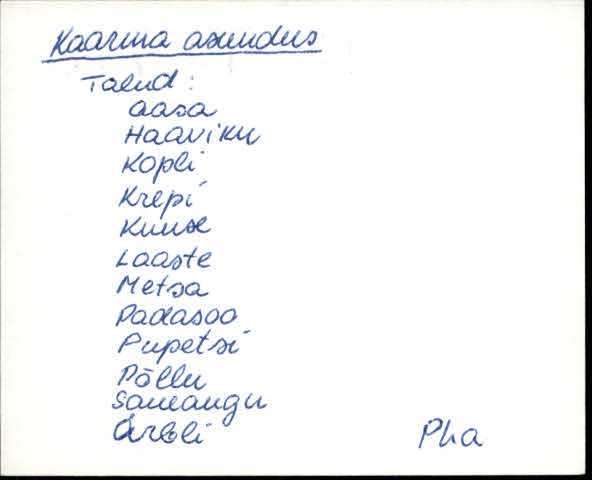 Kaarma asundus
Talud:
Aasa
Haaviku
Kopli
Krepi
Kuuse
Laaste
Metsa
Padasoo
Pupetsi
Põllu
Sameangu
Pha